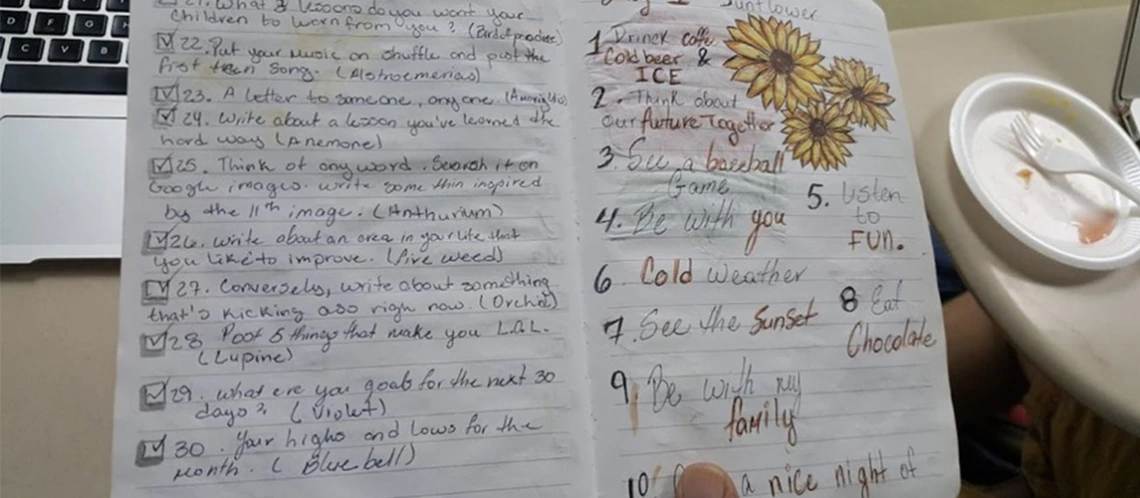 21. What 3 lessons do you want your
children to worn from you? (Bird of paradise)
22. Put your music on shuffle and post the
first ten song. (Alstroemerias)
23. A letter to someone, anyone. (Amaryllis)
24. Write about a lesson you've learned the
hard way (Anemone)
25. Think of any word. Search it on
Google images. write some thin inspired
by the 11th image. (Anthurium)
26. Write about an area in your life that
you like to improve. (fire weed)
27. Conversely, write about something
that's kicking ass righ now. (Orchid)
28 Post 5 things that make you L.O.L.
(Lupine)
29. what are you goals for the next 30
days? (Violet)
30. Your highs and lows for the
month. (Bluebell)
Sunflower
1 Drinck coffe
Cold beer &
ICE
2. Think about
our future Together
3. See a baseball
Game
4. Be with you
5. Listen
to
FUN.
6 Cold weather
7. See the sunset
8 Eat
Chocolate
9, Be with my
family
10 a nice night of